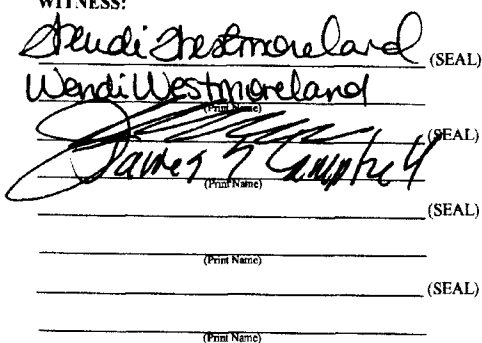 WITNESS:
Wendi Westmoreland (SEAL)
Wendi Westmoreland
(Print Name)
(SEAL)
James Campbell
(Print Name)
(SEAL)
(Print Name)
(SEAL)
(Print Name)